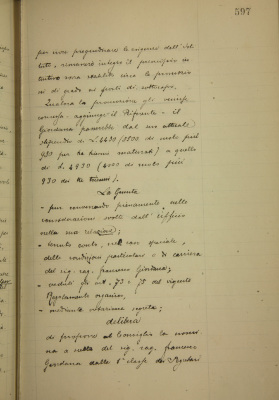 597
per non pregiudicare le ragioni dell'Isti
tuto, rimanere integro il principio in
materia circa le promozio
ni di grado ai fini di
Qualora la promozione gli venisse
concessa, aggiunge il Rifer - il
Giordana passerebbe dal suo attuale
stipendio di L. 4430 (3500 da molo più
930 per tre trienni maturati) a quello
di L. 4930 (4000 di molo più
930 dei tre trienni).
La Giunta
- pur convenendo pienamente nelle
considerazioni svolte dall'Ufficio
nella sua relazione;
- tenuto conto, nel caso speciale,
delle condizioni particolari e di carriera
del sig. rag. Francesco Giordana;
- veduti gli art. 73 e 75 del vigente
Regolamento organico;
- mediante votazione segreta;
delibera
di proporre al Consiglio la nomi
na a scelta del sig. rag. Francesco
Giordana alla 1ª classe dei Segretari